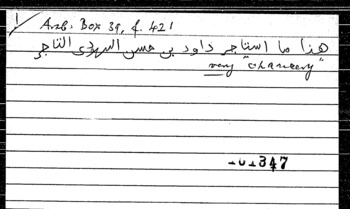 Arab. Box 39, f. 421
هذا ما استاجر داود بن حسن اليهودى التاجر
very "chancery"
347